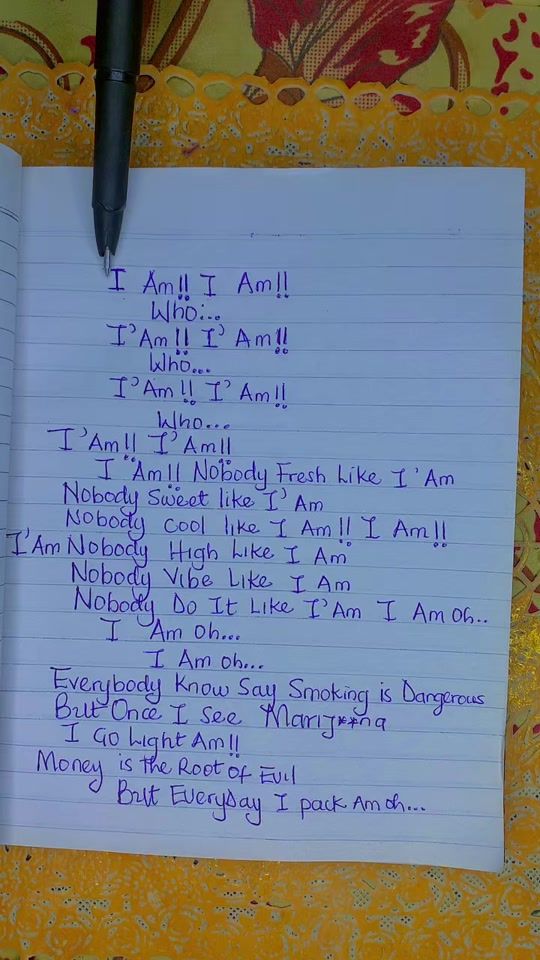 I Am!! I Am!!
Who...
I'Am!! I'Am!!
Who...
I'Am!! I'Am!!
Who...
I'Am!! I'Am!!
I Am!! Nobody Fresh Like I'Am
Nobody Sweet like I'Am
Nobody Cool like I Am!! I Am!!
I'Am Nobody High Like I Am
Nobody Vibe Like I Am
Nobody Do It Like I'Am I Am Oh..
I Am Oh...
I Am oh...
Everybody Know Say Smoking is Dangerous
But Once I See Marij**na
I Go Light Am!!
Money is the Root of Evil
But Everyday I pack Am oh...